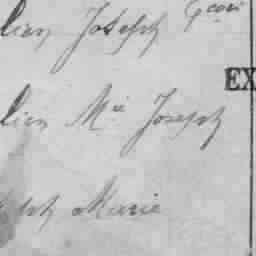 lien Joseph
EX
lien Mie Joseph
ph Marie